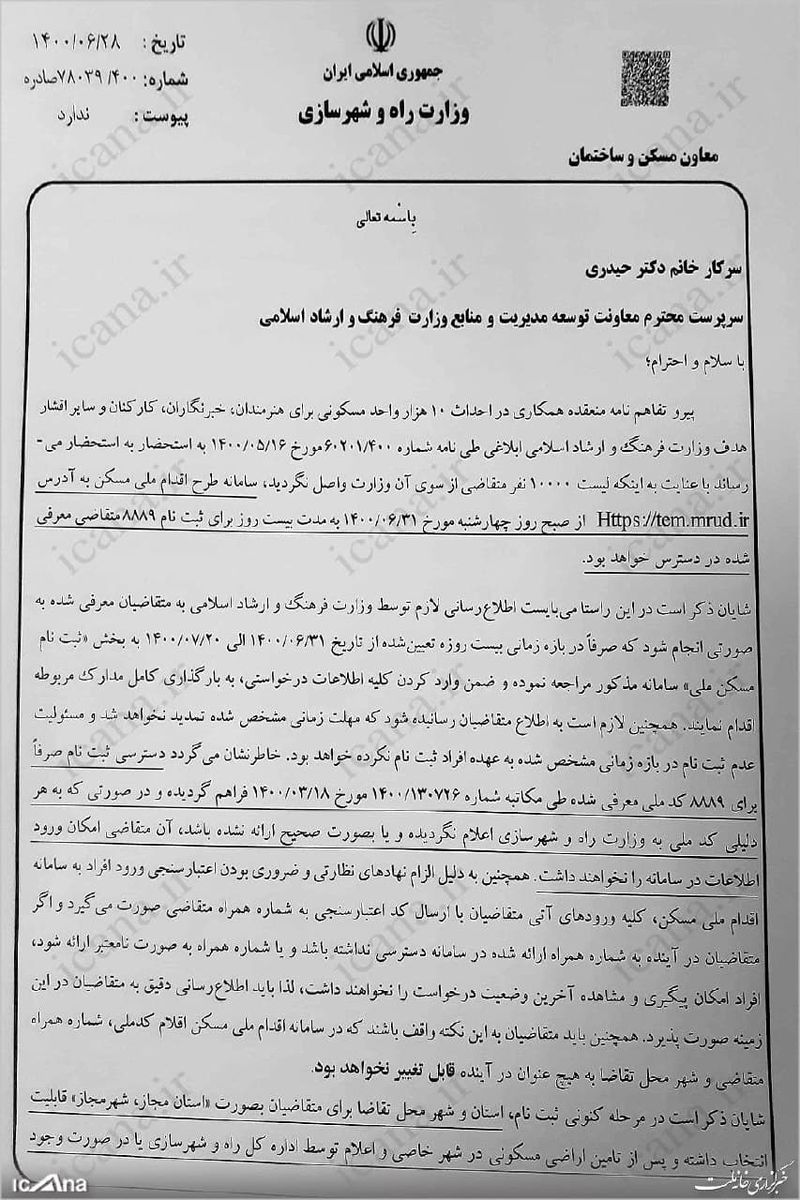 تاریخ : ۱۴۰۰/۰۶/۲۸
شماره: ۷۸۰۳۹/۴۰۰صادره
پیوست : ندارد
جمهوری اسلامی ایران
وزارت راه و شهرسازی
معاون مسکن و ساختمان
باسمه تعالی
سرکار خانم دکتر حیدری
سرپرست محترم معاونت توسعه مدیریت و منابع وزارت فرهنگ و ارشاد اسلامی
با سلام و احترام؛
پیرو تفاهم نامه منعقده همکاری در احداث ۱۰ هزار واحد مسکونی برای هنرمندان، خبرنگاران، کارکنان و سایر اقشار
هدف وزارت فرهنگ و ارشاد اسلامی ابلاغی طی نامه شماره ۶۰۲۰۱/۴۰۰مورخ ۱۴۰۰/۰۵/۱۶ به استحضار به استحضار می-
رساند با عنایت به اینکه لیست ۱۰۰۰۰ نفر متقاضی از سوی آن وزارت واصل نگردید، سامانه طرح اقدام ملی مسکن به آدرس
Https://tem.mrud.ir از صبح روز چهارشنبه مورخ ۱۴۰۰/۰۶/۳۱ به مدت بیست روز برای ثبت نام ۸۸۸۹ متقاضی معرفی
شده در دسترس خواهد بود.
شایان ذکر است در این راستا می‌بایست اطلاع‌رسانی لازم توسط وزارت فرهنگ و ارشاد اسلامی به متقاضیان معرفی شده به
صورتی انجام شود که صرفاً در بازه زمانی بیست روزه تعیین‌شده از تاریخ ۱۴۰۰/۰۶/۳۱ الی ۱۴۰۰/۰۷/۲۰ به بخش «ثبت نام
مسکن ملی» سامانه مذکور مراجعه نموده و ضمن وارد کردن کلیه اطلاعات درخواستی، به بارگذاری کامل مدارک مربوطه
اقدام نمایند. همچنین لازم است به اطلاع متقاضیان رسانیده شود که مهلت زمانی مشخص شده تمدید نخواهد شد و مسئولیت
عدم ثبت نام در بازه زمانی مشخص شده به عهده افراد ثبت نام نکرده خواهد بود. خاطرنشان می‌گردد دسترسی ثبت نام صرفاً
برای ۸۸۸۹ کد ملی معرفی شده طی مکاتبه شماره ۱۴۰۰/۱۳۰۷۲۶ مورخ ۱۴۰۰/۰۳/۱۸ فراهم گردیده و در صورتی که به هر
دلیلی کد ملی به وزارت راه و شهرسازی اعلام نگردیده و یا بصورت صحیح ارائه نشده باشد، آن متقاضی امکان ورود
اطلاعات در سامانه را نخواهند داشت. همچنین به دلیل الزام نهادهای نظارتی و ضروری بودن اعتبارسنجی ورود افراد به سامانه
اقدام ملی مسکن، کلیه ورودهای آتی متقاضیان با ارسال کد اعتبارسنجی به شماره همراه متقاضی صورت می‌گیرد و اگر
متقاضیان در آینده به شماره همراه ارائه شده در سامانه دسترسی نداشته باشد و یا شماره همراه به صورت نامعتبر ارائه شود،
افراد امکان پیگیری و مشاهده آخرین وضعیت درخواست را نخواهند داشت، لذا باید اطلاع‌رسانی دقیق به متقاضیان در این
زمینه صورت پذیرد. همچنین باید متقاضیان به این نکته واقف باشند که در سامانه اقدام ملی مسکن اقلام کدملی، شماره همراه
متقاضی و شهر محل تقاضا به هیچ عنوان در آینده قابل تغییر نخواهد بود.
شایان ذکر است در مرحله کنونی ثبت نام، استان و شهر محل تقاضا برای متقاضیان بصورت «استان مجاز، شهرمجاز» قابلیت
انتخاب داشته و پس از تامین اراضی مسکونی در شهر خاصی و اعلام توسط اداره کل راه و شهرسازی یا در صورت وجود
icana
خبرگزاری خانه ملت
icana.ir